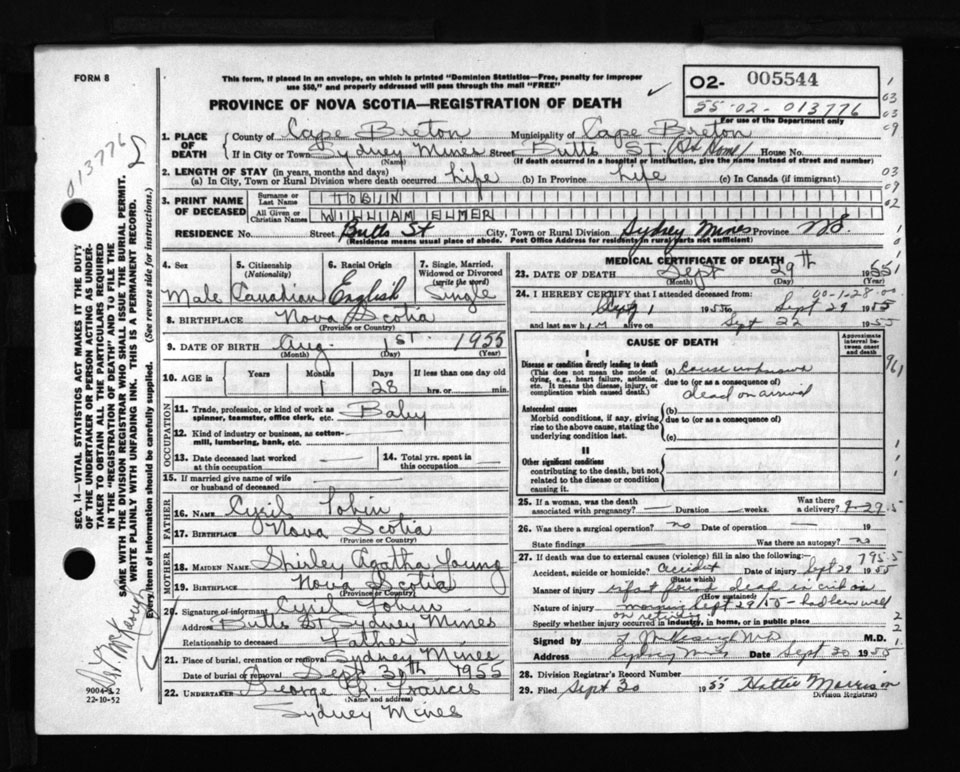 FORM 8
This form, if placed in an envelope, on which is printed "Dominion Statistics—Free, penalty for improper
use $50," and properly addressed will pass through the mail "FREE"
02- 005544
55-02-013776
For use of the Department only
PROVINCE OF NOVA SCOTIA—REGISTRATION OF DEATH
013776
SEC. 14—VITAL STATISTICS ACT MAKES IT THE DUTY
OF THE UNDERTAKER OR PERSON ACTING AS UNDER-
TAKER TO OBTAIN ALL THE PARTICULARS REQUIRED
IN THE "REGISTRATION OF DEATH" AND TO FILE THE
SAME WITH THE DIVISION REGISTRAR WHO SHALL ISSUE THE BURIAL PERMIT.
WRITE PLAINLY WITH UNFADING INK. THIS IS A PERMANENT RECORD.
Every item of information should be carefully supplied. (See reverse side for instructions.)
1. PLACE OF DEATH
County of Cape Breton Municipality of Cape Breton
If in City or Town Sydney Mines Street Butts ST. (At Home) House No.
(Name) (If death occurred in a hospital or institution, give the name instead of street and number)
2. LENGTH OF STAY (in years, months and days)
(a) In City, Town or Rural Division where death occurred Life (b) In Province Life (c) In Canada (if immigrant)
3. PRINT NAME OF DECEASED
Surname or Last Name TOBIN
All Given or Christian Names WILLIAM ELMER
RESIDENCE No. Street Butts St City, Town or Rural Division Sydney Mines Province N.S.
(Residence means usual place of abode. Post Office Address for residents in rural parts not sufficient)
4. Sex
Male
5. Citizenship
(Nationality)
Canadian
6. Racial Origin
English
7. Single, Married,
Widowed or Divorced
(write the word)
Single
8. BIRTHPLACE Nova Scotia
(Province or Country)
9. DATE OF BIRTH Aug 1st 1955
(Month) (Day) (Year)
10. AGE in Years Months Days 28
If less than one day old
hrs. or min.
OCCUPATION
11. Trade, profession, or kind of work as
spinner, teamster, office clerk, etc. Baby
12. Kind of industry or business, as cotton-
mill, lumbering, bank, etc.
13. Date deceased last worked
at this occupation
14. Total yrs. spent in
this occupation
15. If married give name of wife
or husband of deceased
FATHER
16. NAME Cyril Tobin
17. BIRTHPLACE Nova Scotia
(Province or Country)
MOTHER
18. MAIDEN NAME Shirley Agatha Young
19. BIRTHPLACE Nova Scotia
(Province or Country)
20. Signature of informant Cyril Tobin
Address Butts St Sydney Mines
Relationship to deceased Father
21. Place of burial, cremation or removal Sydney Mines
Date of burial or removal Sept 30th 1955
22. UNDERTAKER George R. Francis
(Name and address)
Sydney Mines
9004-3.2
22-10-52
MEDICAL CERTIFICATE OF DEATH
23. DATE OF DEATH Sept 29th 1955
(Month) (Day) (Year)
24. I HEREBY CERTIFY that I attended deceased from:
Aug 1 1955 to Sept 29 1955
and last saw him alive on Sept 22 1955
CAUSE OF DEATH
Approximate
interval between
onset
and death
I
Disease or condition directly leading to death
(This does not mean the mode of
dying, e.g., heart failure, asthenia,
etc. It means the disease, injury, or
complication which caused death.)
(a) Cause unknown
due to (or as a consequence of)
dead on arrival
Antecedent causes
Morbid conditions, if any, giving
rise to the above cause, stating the
underlying condition last.
(b)
due to (or as a consequence of)
(c)
II
Other significant conditions
contributing to the death, but not
related to the disease or condition
causing it.
961
25. If a woman, was the death
associated with pregnancy? Duration weeks.
Was there
a delivery?
26. Was there a surgical operation? no Date of operation 19
State findings Was there an autopsy? no
27. If death was due to external causes (violence) fill in also the following:
795.5
Accident, suicide or homicide? Accident Date of injury Sept 29 1955
(State which)
Manner of injury found dead in crib on
(How sustained)
Nature of injury morning Sept 29/55 - had been well
on retiring
Specify whether injury occurred in industry, in home, or in public place
Signed by M.D.
Address Sydney Mines Date Sept 30 1955
28. Division Registrar's Record Number
29. Filed Sept 30 1955 Hattie Morrison
Division Registrar